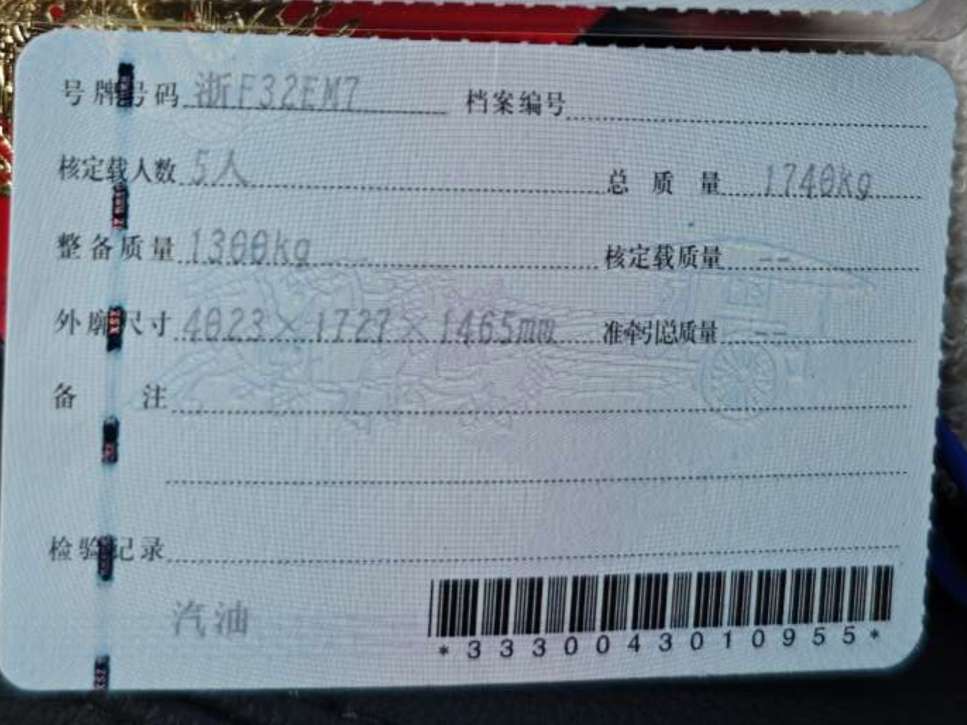 号牌号码 浙F32EM7 档案编号
核定载人数 5人 总质量 1740kg
整备质量 1300kg 核定载质量 --
外廓尺寸 4023×1727×1465mm 准牵引总质量 --
备注
检验记录
汽油
*3330043010955*